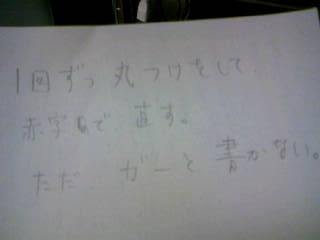 1回ずつ丸つけをして
赤字で直す。
ただ ガーと書かない。